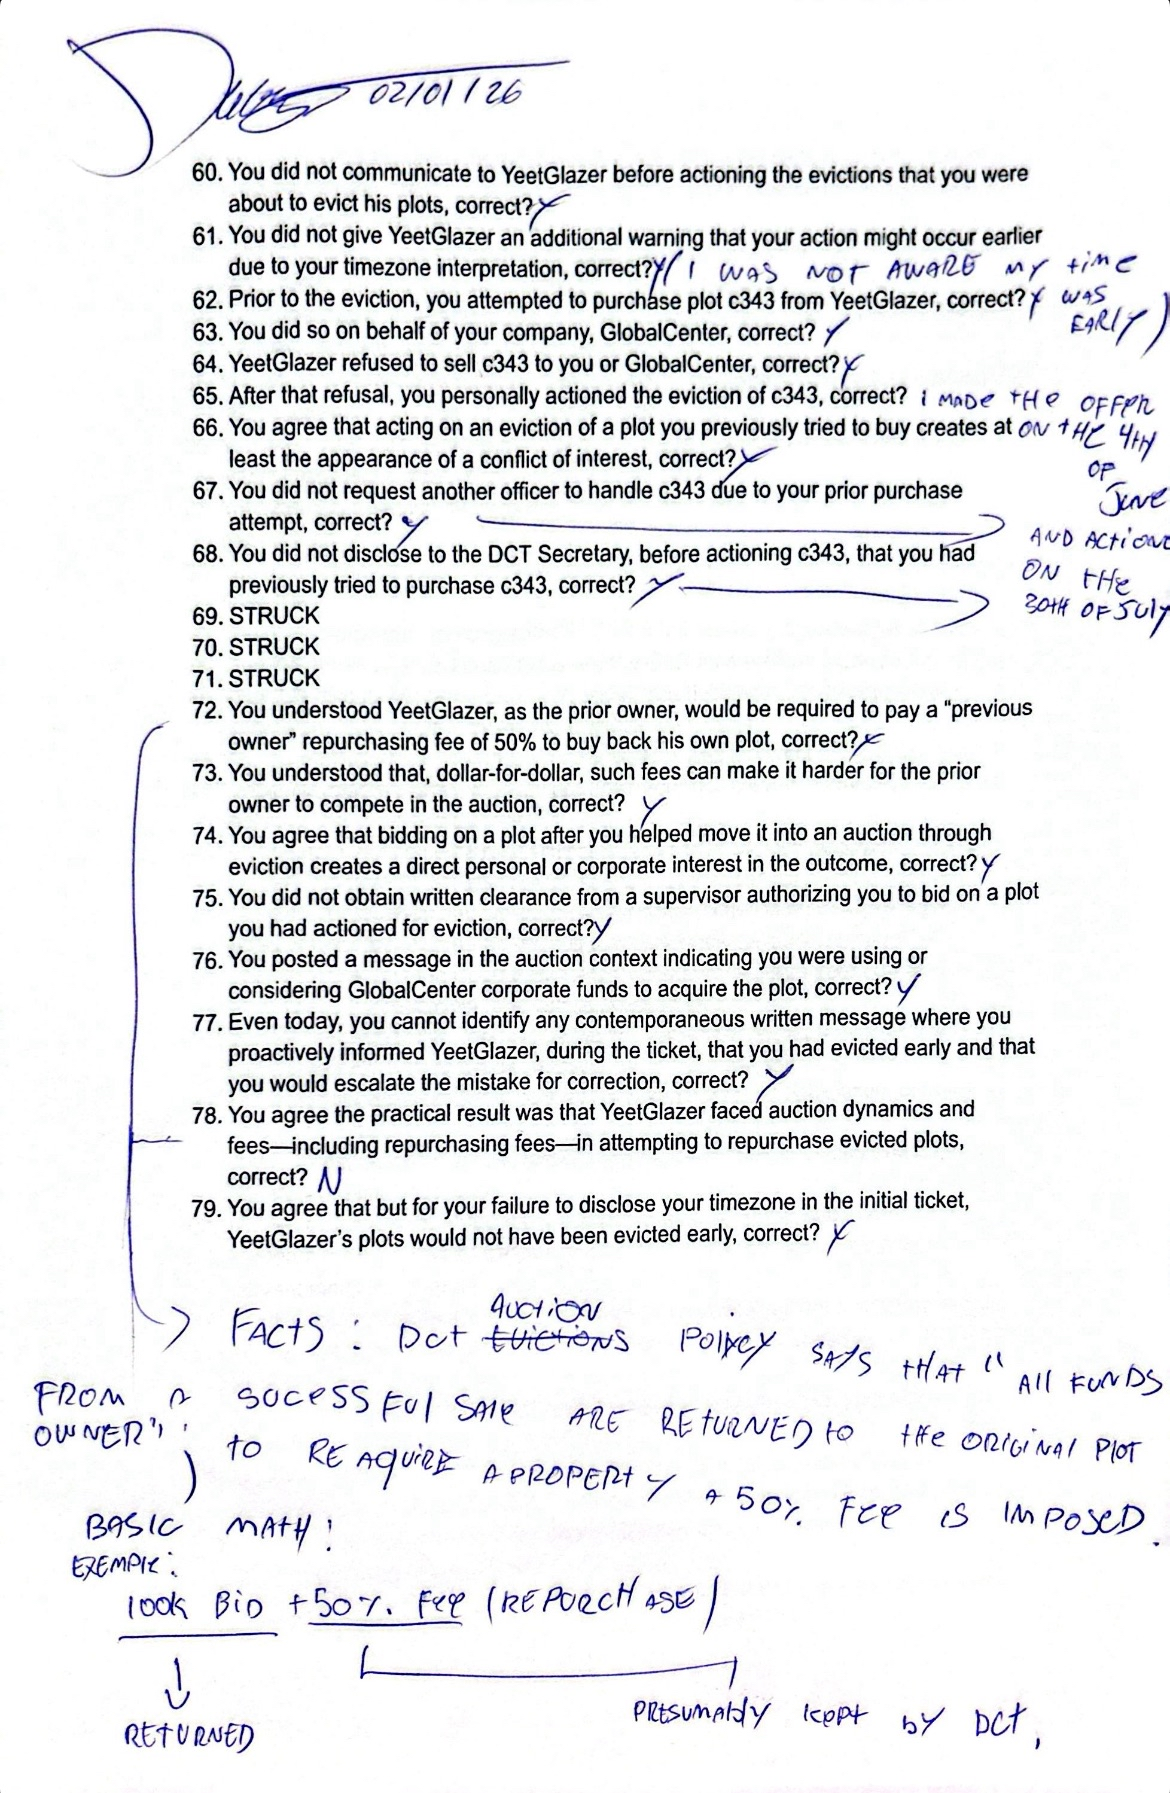 02/01/26
60. You did not communicate to YeetGlazer before actioning the evictions that you were
about to evict his plots, correct? Y
61. You did not give YeetGlazer an additional warning that your action might occur earlier
due to your timezone interpretation, correct? Y ( I WAS NOT AWARE MY time
WAS
EARLY )
62. Prior to the eviction, you attempted to purchase plot c343 from YeetGlazer, correct? Y
63. You did so on behalf of your company, GlobalCenter, correct? Y
64. YeetGlazer refused to sell c343 to you or GlobalCenter, correct? Y
65. After that refusal, you personally actioned the eviction of c343, correct? I MADE tHe OFFER
ON tHE 4tH
OF
JUNE
AND ACTiONE
ON tHe
30tH OF JULY
66. You agree that acting on an eviction of a plot you previously tried to buy creates at
least the appearance of a conflict of interest, correct? Y
67. You did not request another officer to handle c343 due to your prior purchase
attempt, correct? Y
68. You did not disclose to the DCT Secretary, before actioning c343, that you had
previously tried to purchase c343, correct? Y
69. STRUCK
70. STRUCK
71. STRUCK
72. You understood YeetGlazer, as the prior owner, would be required to pay a "previous
owner" repurchasing fee of 50% to buy back his own plot, correct? Y
73. You understood that, dollar-for-dollar, such fees can make it harder for the prior
owner to compete in the auction, correct? Y
74. You agree that bidding on a plot after you helped move it into an auction through
eviction creates a direct personal or corporate interest in the outcome, correct? Y
75. You did not obtain written clearance from a supervisor authorizing you to bid on a plot
you had actioned for eviction, correct? Y
76. You posted a message in the auction context indicating you were using or
considering GlobalCenter corporate funds to acquire the plot, correct? Y
77. Even today, you cannot identify any contemporaneous written message where you
proactively informed YeetGlazer, during the ticket, that you had evicted early and that
you would escalate the mistake for correction, correct? Y
78. You agree the practical result was that YeetGlazer faced auction dynamics and
fees—including repurchasing fees—in attempting to repurchase evicted plots,
correct? N
79. You agree that but for your failure to disclose your timezone in the initial ticket,
YeetGlazer's plots would not have been evicted early, correct? Y
AUCtiON
FACtS : Dct EVictiONS POlicY SAYS tHAt " All FUNDS
FROM A SUCESSFUl SAle ARE REtURNED to tHe ORIGINAl PlOt
OWNER";
to REAQUIRE A PROPERtY A 50% Fee iS IMPOSED.
BASIC MAtH!
EXEMPlE:
100k BiD + 50% Fee (REPURCHASE)
REtURNED
PRESUMAblY kept bY DCt,